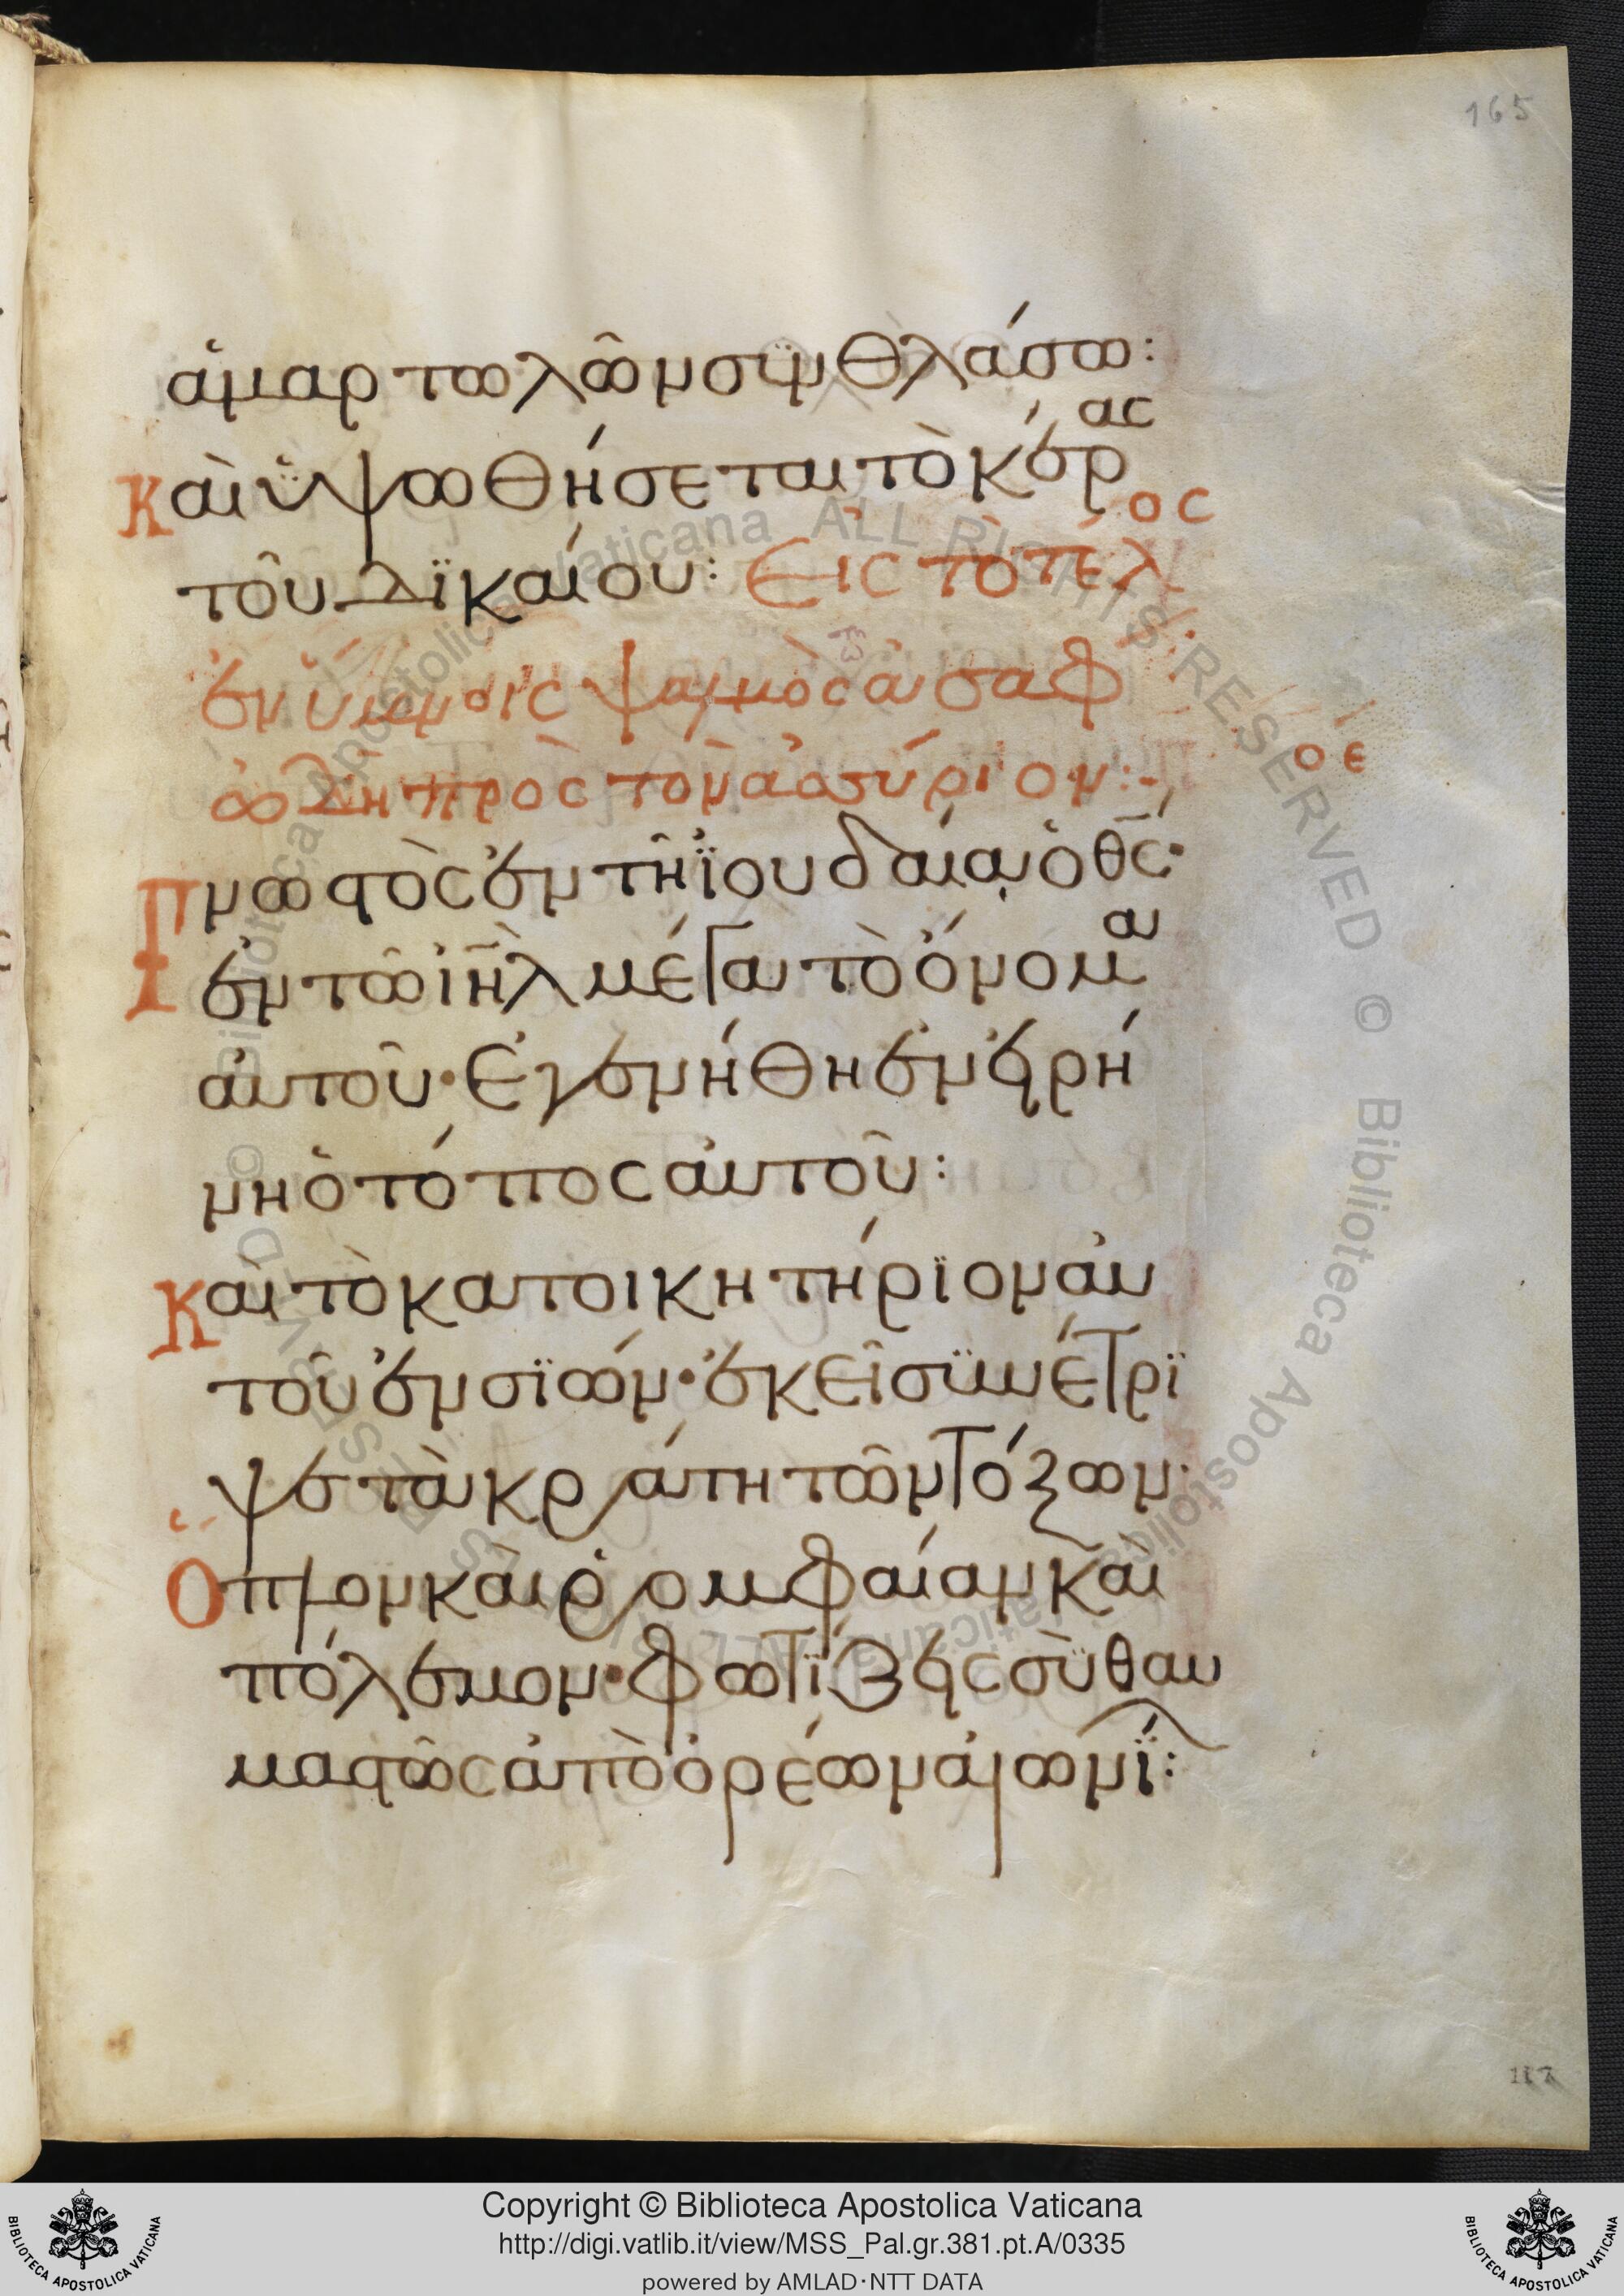 165
ἁμαρτωλῶν συνθλάσω:
Καὶ ὑψωθήσεται τὸ κέρας
τοῦ δϊκαίου: Εἰς τὸ τέλος
ἐν ὕμνοις ψαλμὸς τῶ ἀσαφ
ὠδὴ πρὸς τὸν ἀσσύριον:-
οε
Γνωστὸς ἐν τῆ ϊουδαία ὁ θς·
ἐν τῶ ιηλ μέγα τὸ ὄνομα
αὐτοῦ· Ἐγενήθη ἐν εἰρή
νη ὁ τόπος αὐτοῦ:
Καὶ τὸ κατοικητήρϊον αὐ
τοῦ ἐν σϊών· ἐκεῖ συνέτρϊ
ψε τὰ κράτη τῶν τόξων·
Ὅπλον καὶ ῥομφαίαν καὶ
πόλεμον· φωτΐζεις σὺ θαυ
μαστῶς ἀπὸ ὀρέων αἰωνΐ:
117
Copyright © Biblioteca Apostolica Vaticana
http://digi.vatlib.it/view/MSS_Pal.gr.381.pt.A/0335
powered by AMLAD·NTT DATA
BIBLIOTECA APOSTOLICA VATICANA
BIBLIOTECA APOSTOLICA VATICANA